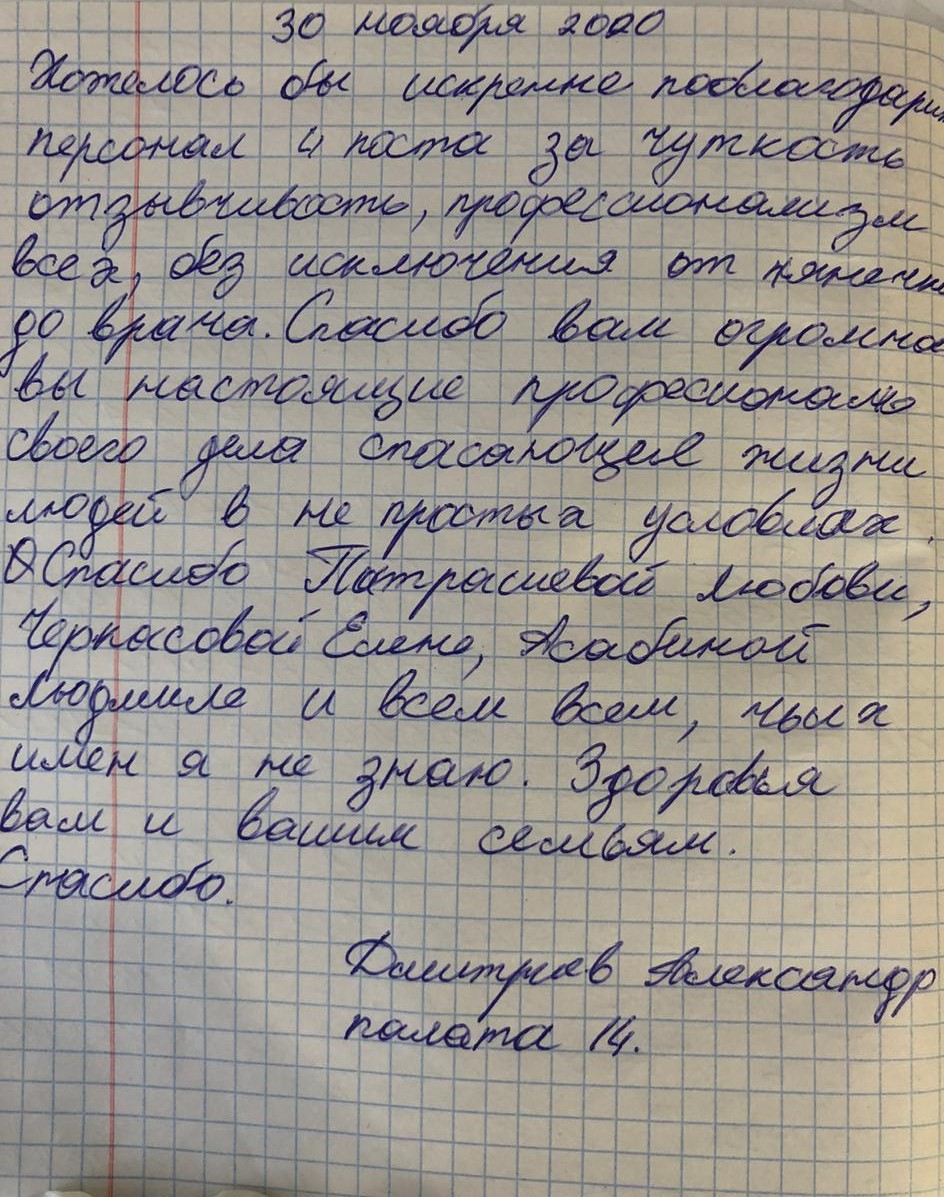 30 ноября 2020
Хотелось бы искренне поблагодарит
персонал 4 поста за чуткость
отзывчивость, профессионализм
всех, без исключения от нянечки
до врача. Спасибо вам огромно
вы настоящие професионалы
своего дела спасающея жизни
людей в не простых условиах.
Спасибо Патрашевой Любови,
Черкасовой Елене,
Людмиле и всем всем, чьих
имен я не знаю. Здоровья
вам и вашим семьям.
Спасибо.
Дмитриев Александр
палата 14.